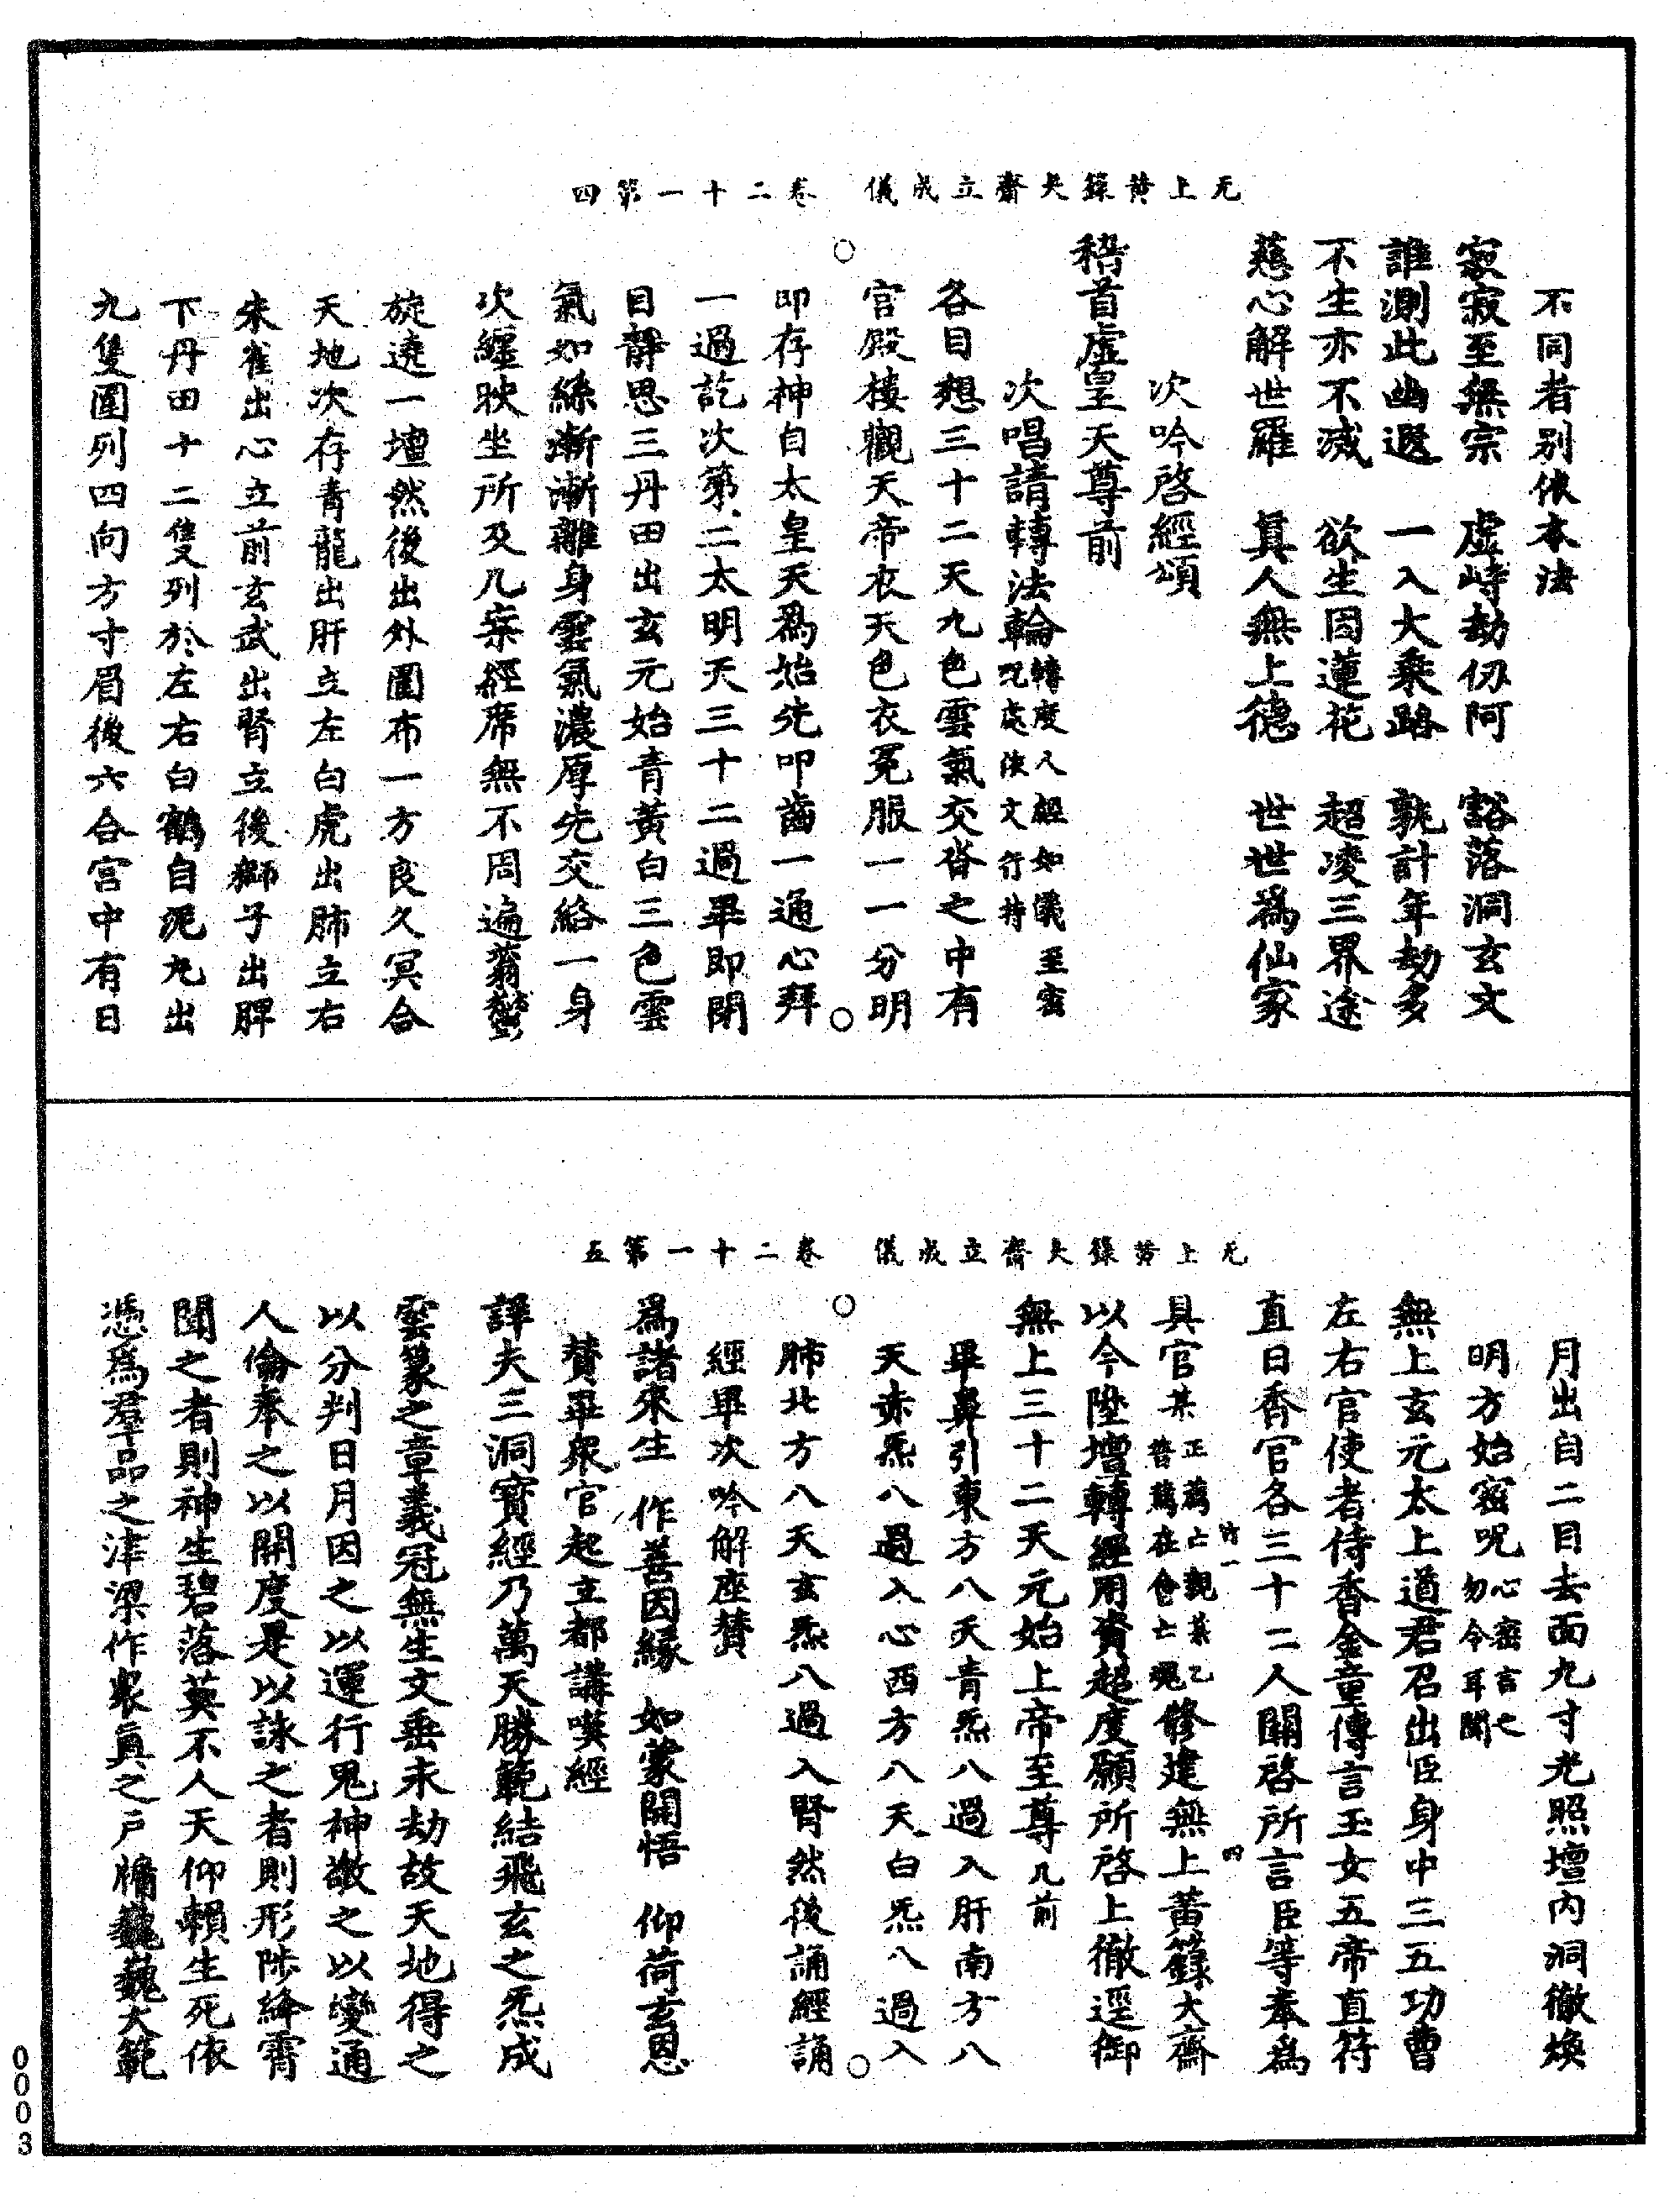 无上黃籙大齋立成儀　卷二十一第四
不同者別依本法
寂寂至無宗　虛峙劫仞阿　豁落洞玄文
誰測此幽遐　一入大乘路　孰計年劫多
不生亦不滅　欲生因蓮花　超凌三界途
慈心解世羅　真人無上德　世世爲仙家
次吟啓經頌
稽首虛皇天尊前
次唱請轉法輪轉度人經如儀至密呪處陳文行持
各目想三十二天九色雲氣交沓之中有
官殿樓觀天帝衣天色衣冕服一一分明
叩存神自太皇天爲始先叩齒一通心拜
一過訖次第二太明天三十二過畢即閉
目靜思三丹田出玄元始青黃白三色雲
氣如絲漸漸離身雲氣濃厚先交絡一身
次纏映坐所及几案經席無不周遍蓊鬱
旋遶一壇然後出外圍布一方良久冥合
天地次存青龍出肝立左白虎出肺立右
朱雀出心立前玄武出腎立後獅子出脾
下丹田十二隻列於左右白鶴自泥丸出
九隻圍列四向方寸眉後六合宮中有日
无上黃籙大齋立成儀　卷二十一第五
月出自二目去面九寸光照壇內洞徹煥
明方始密呪心密言之勿令耳聞
無上玄元太上道君召出臣身中三五功曹
左右官使者侍香金童傳言玉女五帝直符
直日香官各三十二人關啓所言臣等奉爲
具官某正薦亡親某乙普薦在會亡魂修建無上黃籙大齋
以今陞壇轉經用資超度願所啓上徹逕御
無上三十二天元始上帝至尊几前
畢鼻引東方八天青炁八過入肝南方八
天赤炁八過入心西方八天白炁八過入
肺北方八天玄炁八過入腎然後誦經誦
經畢次吟解座讚
爲諸來生　作善因緣　如蒙開悟　仰荷玄恩
讚畢衆官起立都講嘆經
詳夫三洞寶經乃萬天勝範結飛玄之炁成
雲篆之章義冠無生文垂未劫故天地得之
以分判日月因之以運行鬼神敬之以變通
人倫奉之以開度是以詠之者則形陟絳霄
聞之者則神生碧落莫不人天仰賴生死依
憑爲羣品之津梁作衆真之戶牖巍巍大範
0003